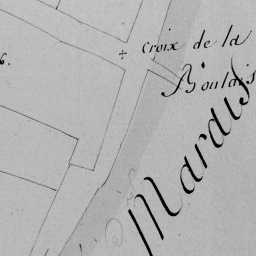 6.
croix de la
Boulais
Marais